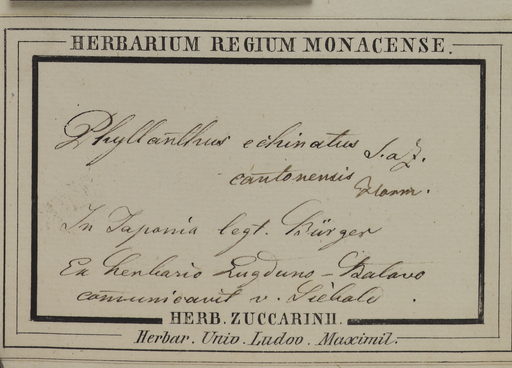 HERBARIUM REGIUM MONACENSE.
Phyllanthus echinatus S. a Z.
cantonensis Horm.
In Japonia legt. Bürger
Ex herbario Lugduno-Batavo
communicavit v. Siebold.
HERB. ZUCCARINII.
Herbar. Univ. Ludov. Maximil.